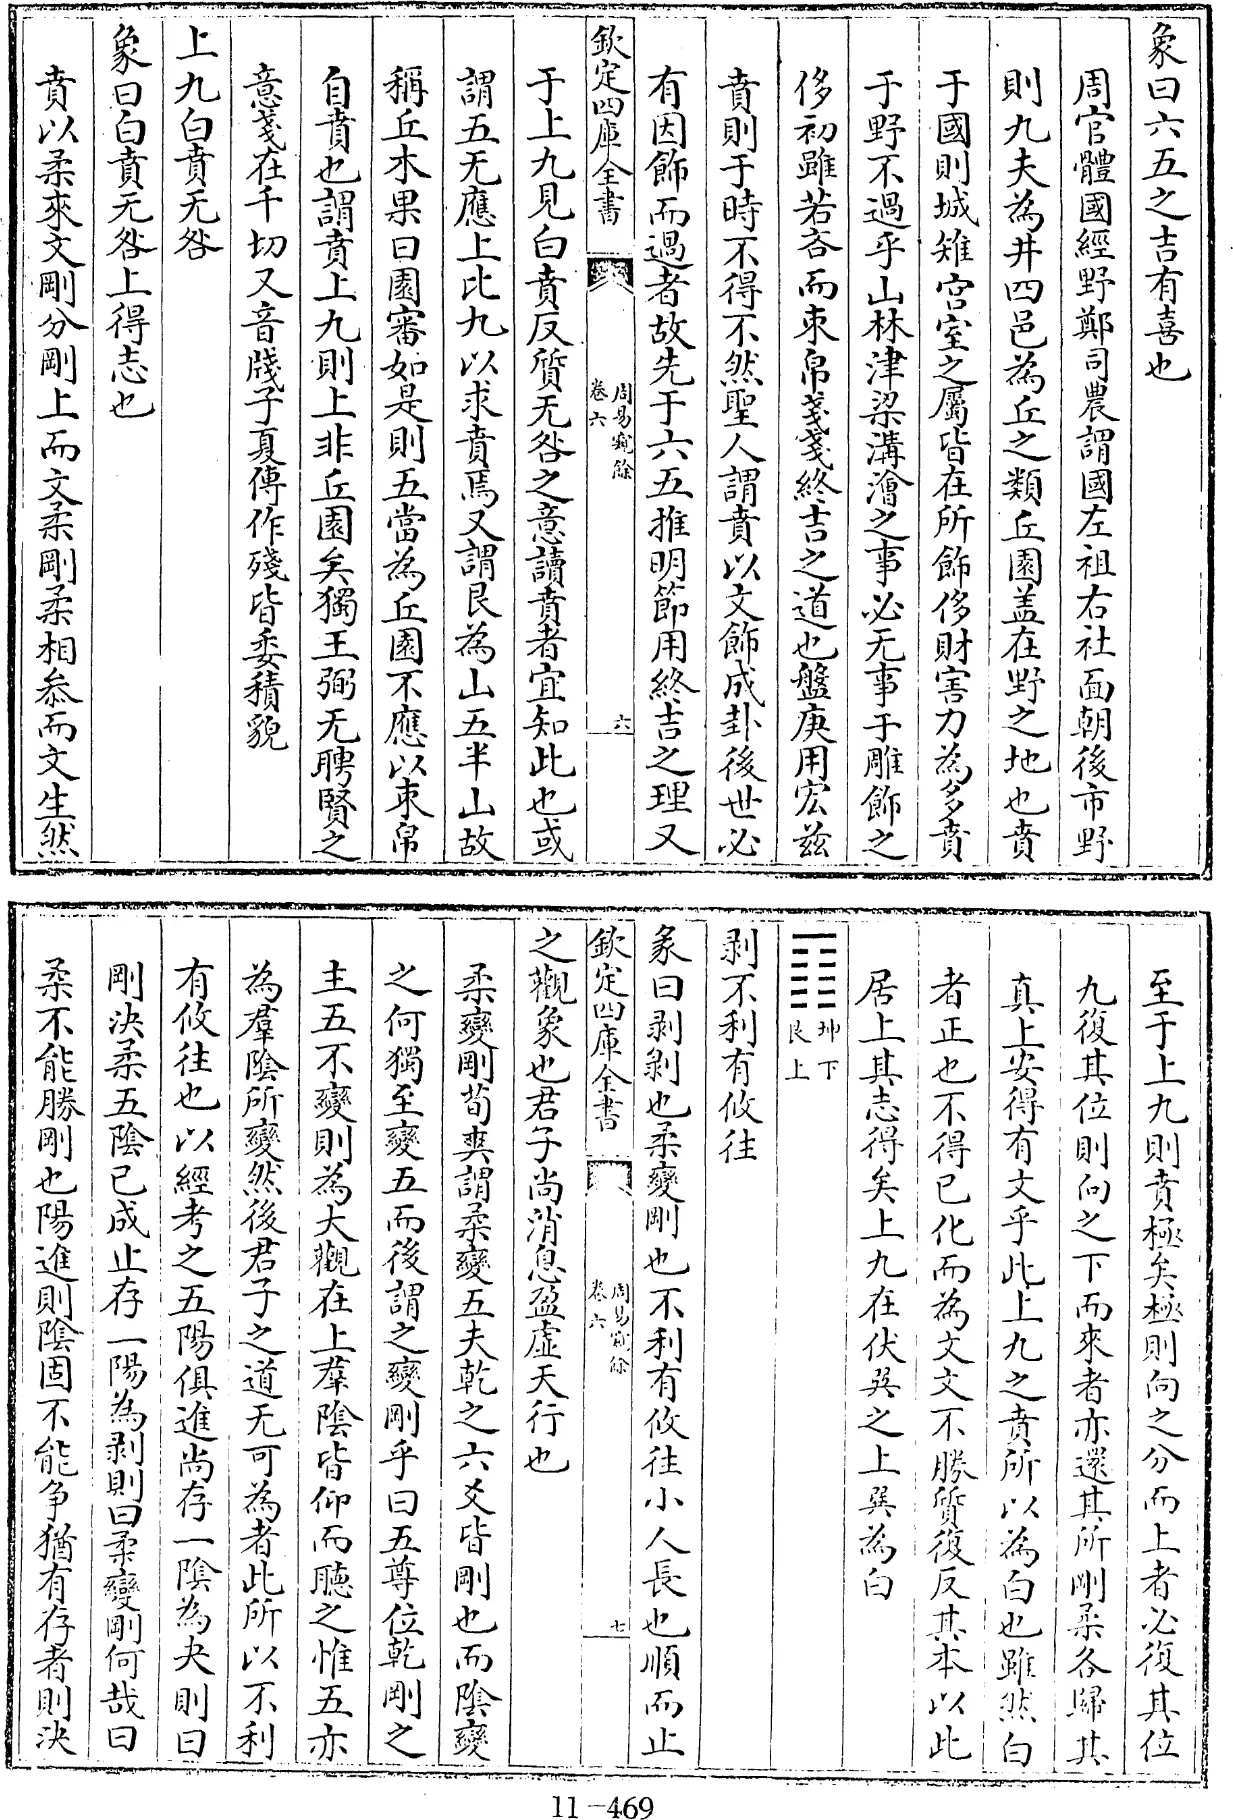 象曰六五之吉有喜也
周官體國經野鄭司農謂國左祖右社面朝後市野
則九夫為井四邑為丘之類丘園盖在野之地也賁
于國則城雉宫室之屬皆在所飾侈財害力為多賁
于野不過乎山林津梁溝澮之事必无事于雕飾之
侈初雖若吝而束帛戔戔終吉之道也盤庚用宏兹
賁則于時不得不然聖人謂賁以文飾成卦後世必
有因飾而過者故先于六五推明節用終吉之理又
欽定四庫全書
周易窺餘
卷六
六
于上九見白賁反質无咎之意讀賁者宜知此也或
謂五无應上比九以求賁焉又謂艮為山五半山故
稱丘木果曰園審如是則五當為丘園不應以束帛
自賁也謂賁上九則上非丘園矣獨王弼无聘賢之
意戔在千切又音牋子夏傳作殘皆委積貌
上九白賁无咎
象曰白賁无咎上得志也
賁以柔來文剛分剛上而文柔剛柔相叅而文生然
至于上九則賁極矣極則向之分而上者必復其位
九復其位則向之下而來者亦還其所剛柔各歸其
真上安得有文乎此上九之賁所以為白也雖然白
者正也不得已化而為文文不勝質復反其本以此
居上其志得矣上九在伏巽之上巽為白
䷖
坤下
艮上
剥不利有攸往
彖曰剥剥也柔變剛也不利有攸往小人長也順而止
欽定四庫全書
周易窺餘
卷六
七
之觀象也君子尚消息盈虚天行也
柔變剛荀爽謂柔變五夫乾之六爻皆剛也而陰變
之何獨至變五而後謂之變剛乎曰五尊位乾剛之
主五不變則為大觀在上羣陰皆仰而聽之惟五亦
為羣陰所變然後君子之道无可為者此所以不利
有攸往也以經考之五陽俱進尚存一陰為夬則曰
剛決柔五陰已成止存一陽為剥則曰柔變剛何哉曰
柔不能勝剛也陽進則陰固不能争猶有存者則決
11-469